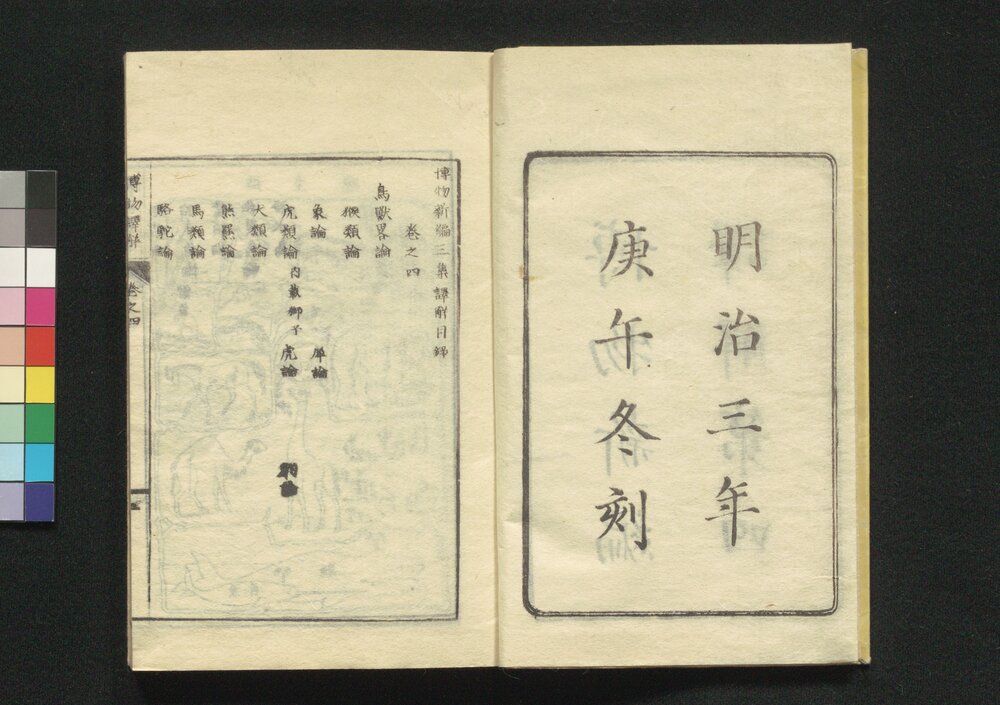 明治三年
庚午冬刻
博物新編三集譯解目錄
巻之四
鳥獸畧論
猴類論
象論 犀論
虎類論 内載獅子 虎論 豹論
犬類論
熊羆論
馬類論
駱駝論
博物譯解 巻之四